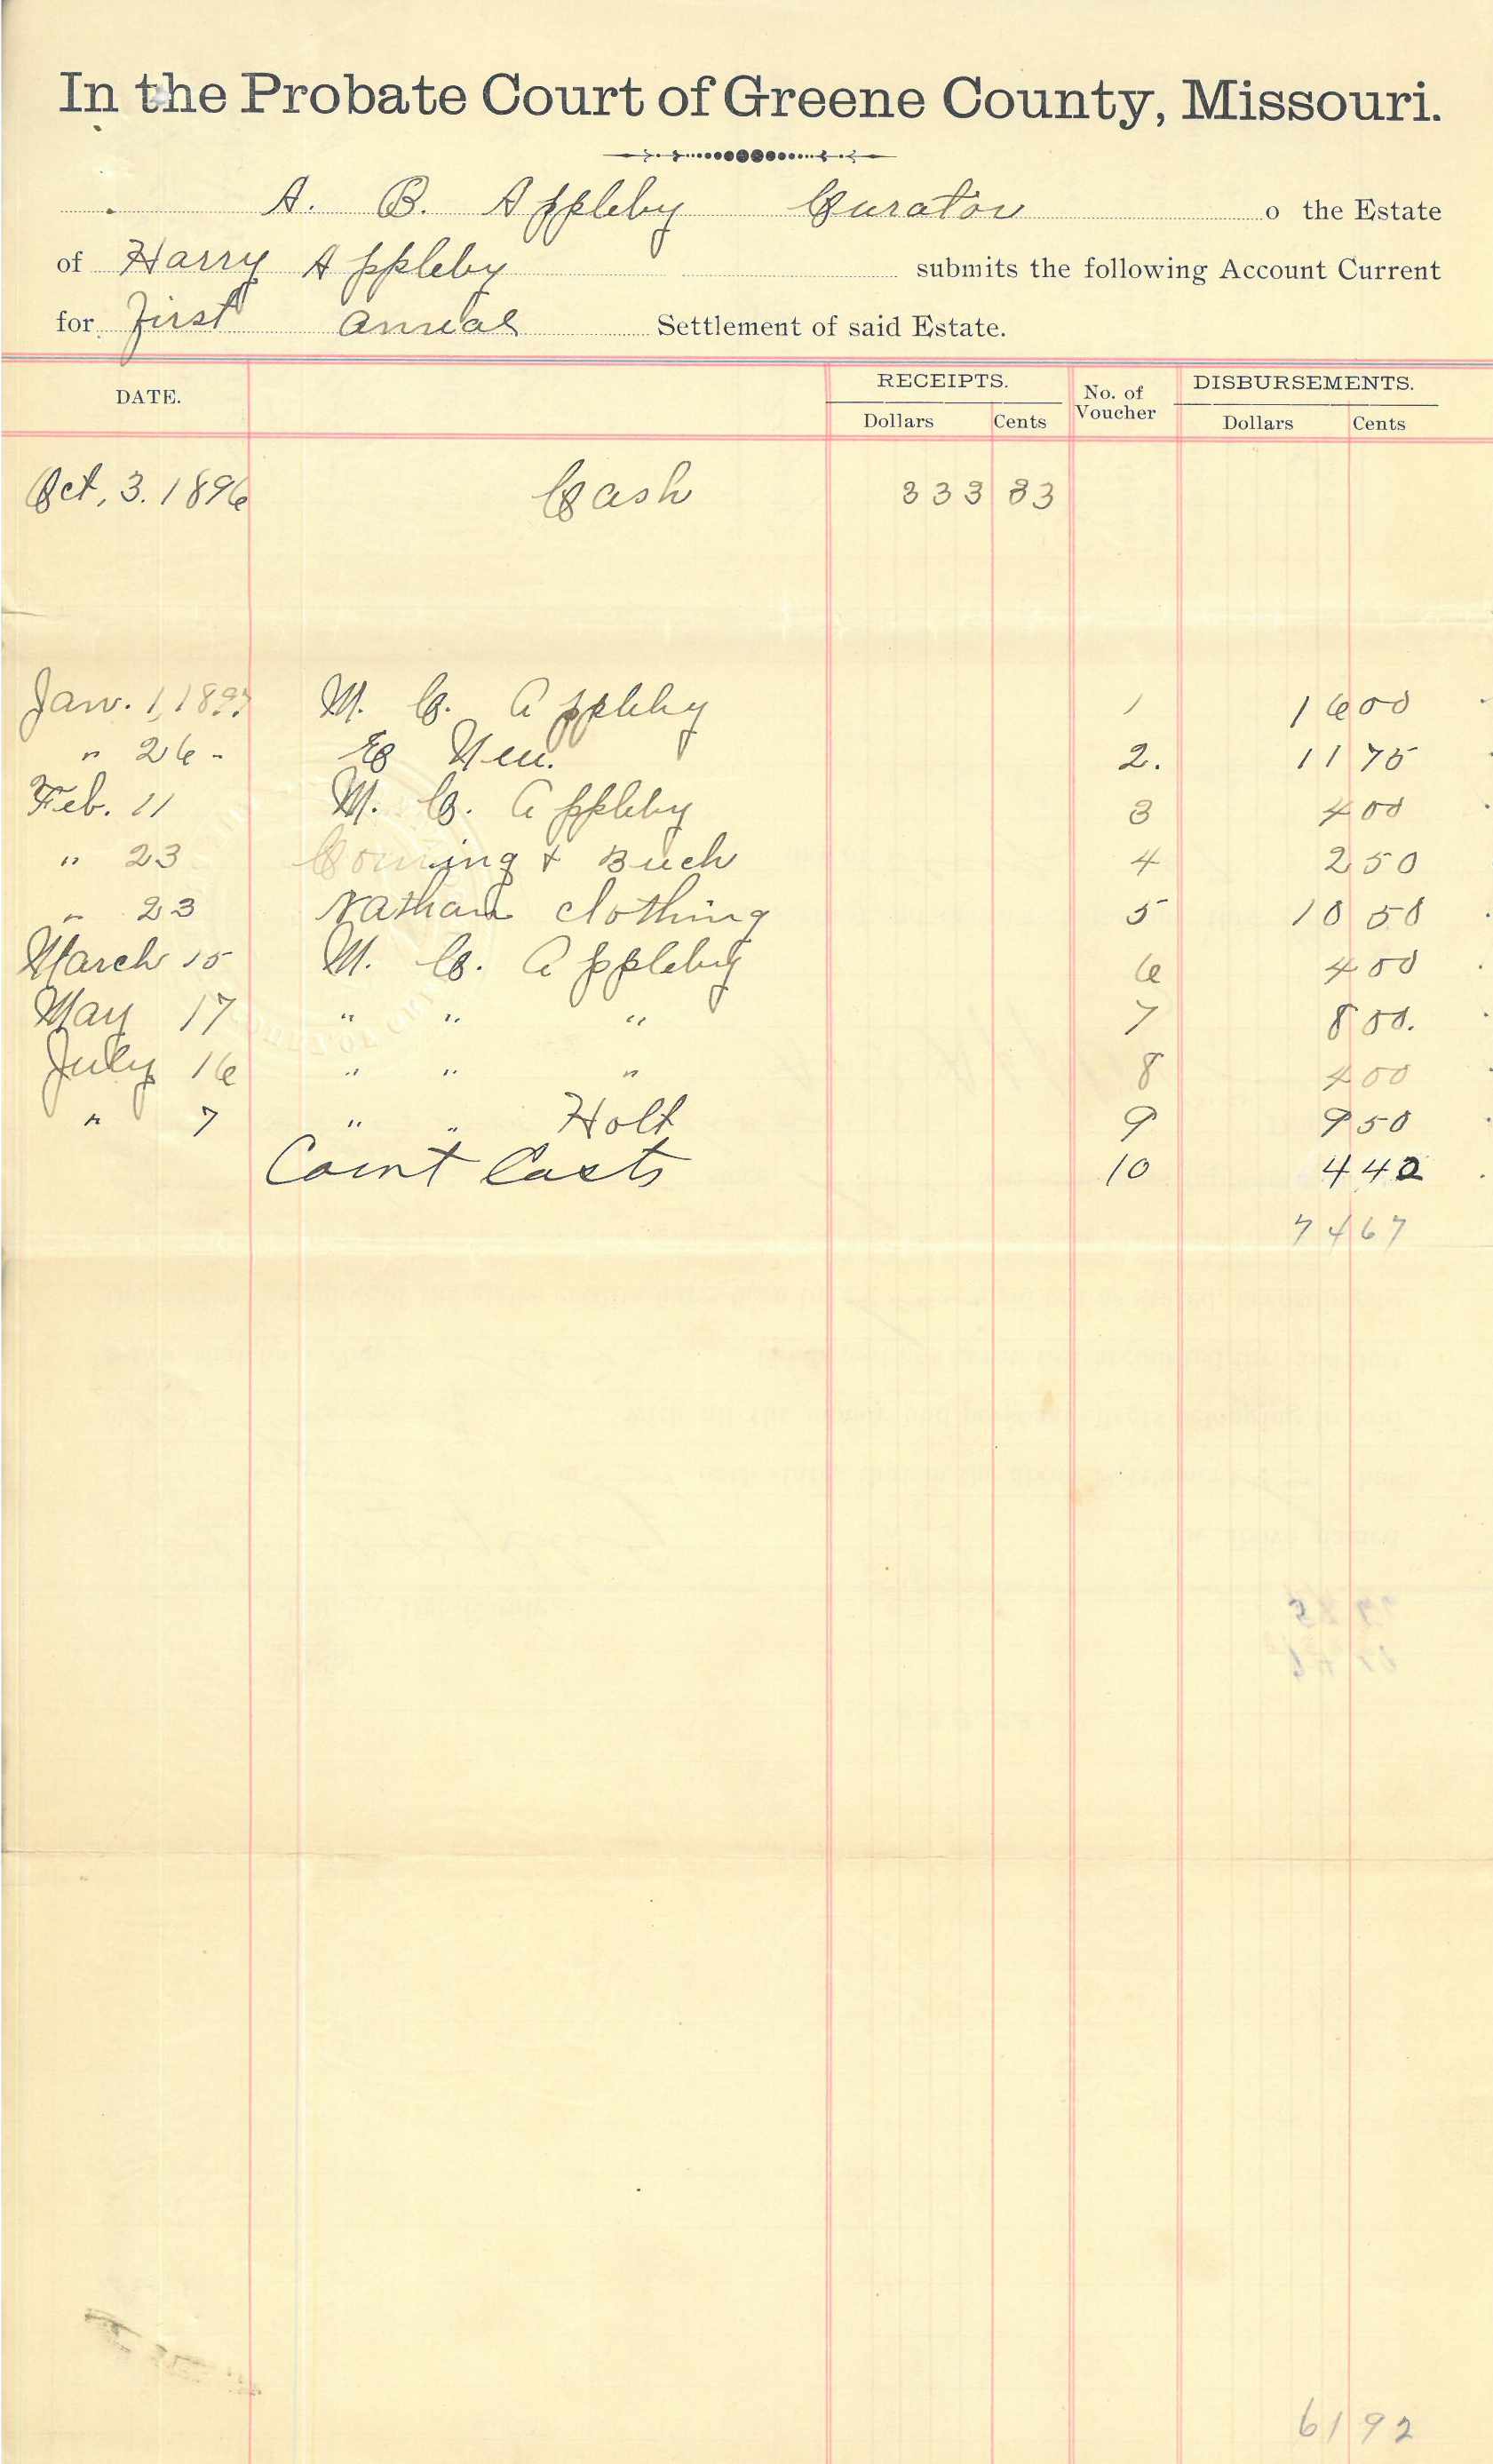 In the Probate Court of Greene County, Missouri.
A. B. Appleby Curator o the Estate
of Harry Appleby submits the following Account Current
for First Annual Settlement of said Estate.
DATE. RECEIPTS. No. of Voucher DISBURSEMENTS.
Dollars Cents Dollars Cents
Oct, 3. 1896 Cash 333 33
Jan. 1, 1897 M. C. Appleby 1 16 00
" 26 - 2. 11 75
Feb. 11 M. C. Appleby 3 4 00
" 23 & 4 2 50
" 23 Nathan clothing 5 10 50
March 15 M. C. Appleby 6 4 00
May 17 " " " 7 8 00.
July 16 " " " 8 4 00
" 7 " " Holt 9 9 50
Court Costs 10 4 42
74 67
61 92